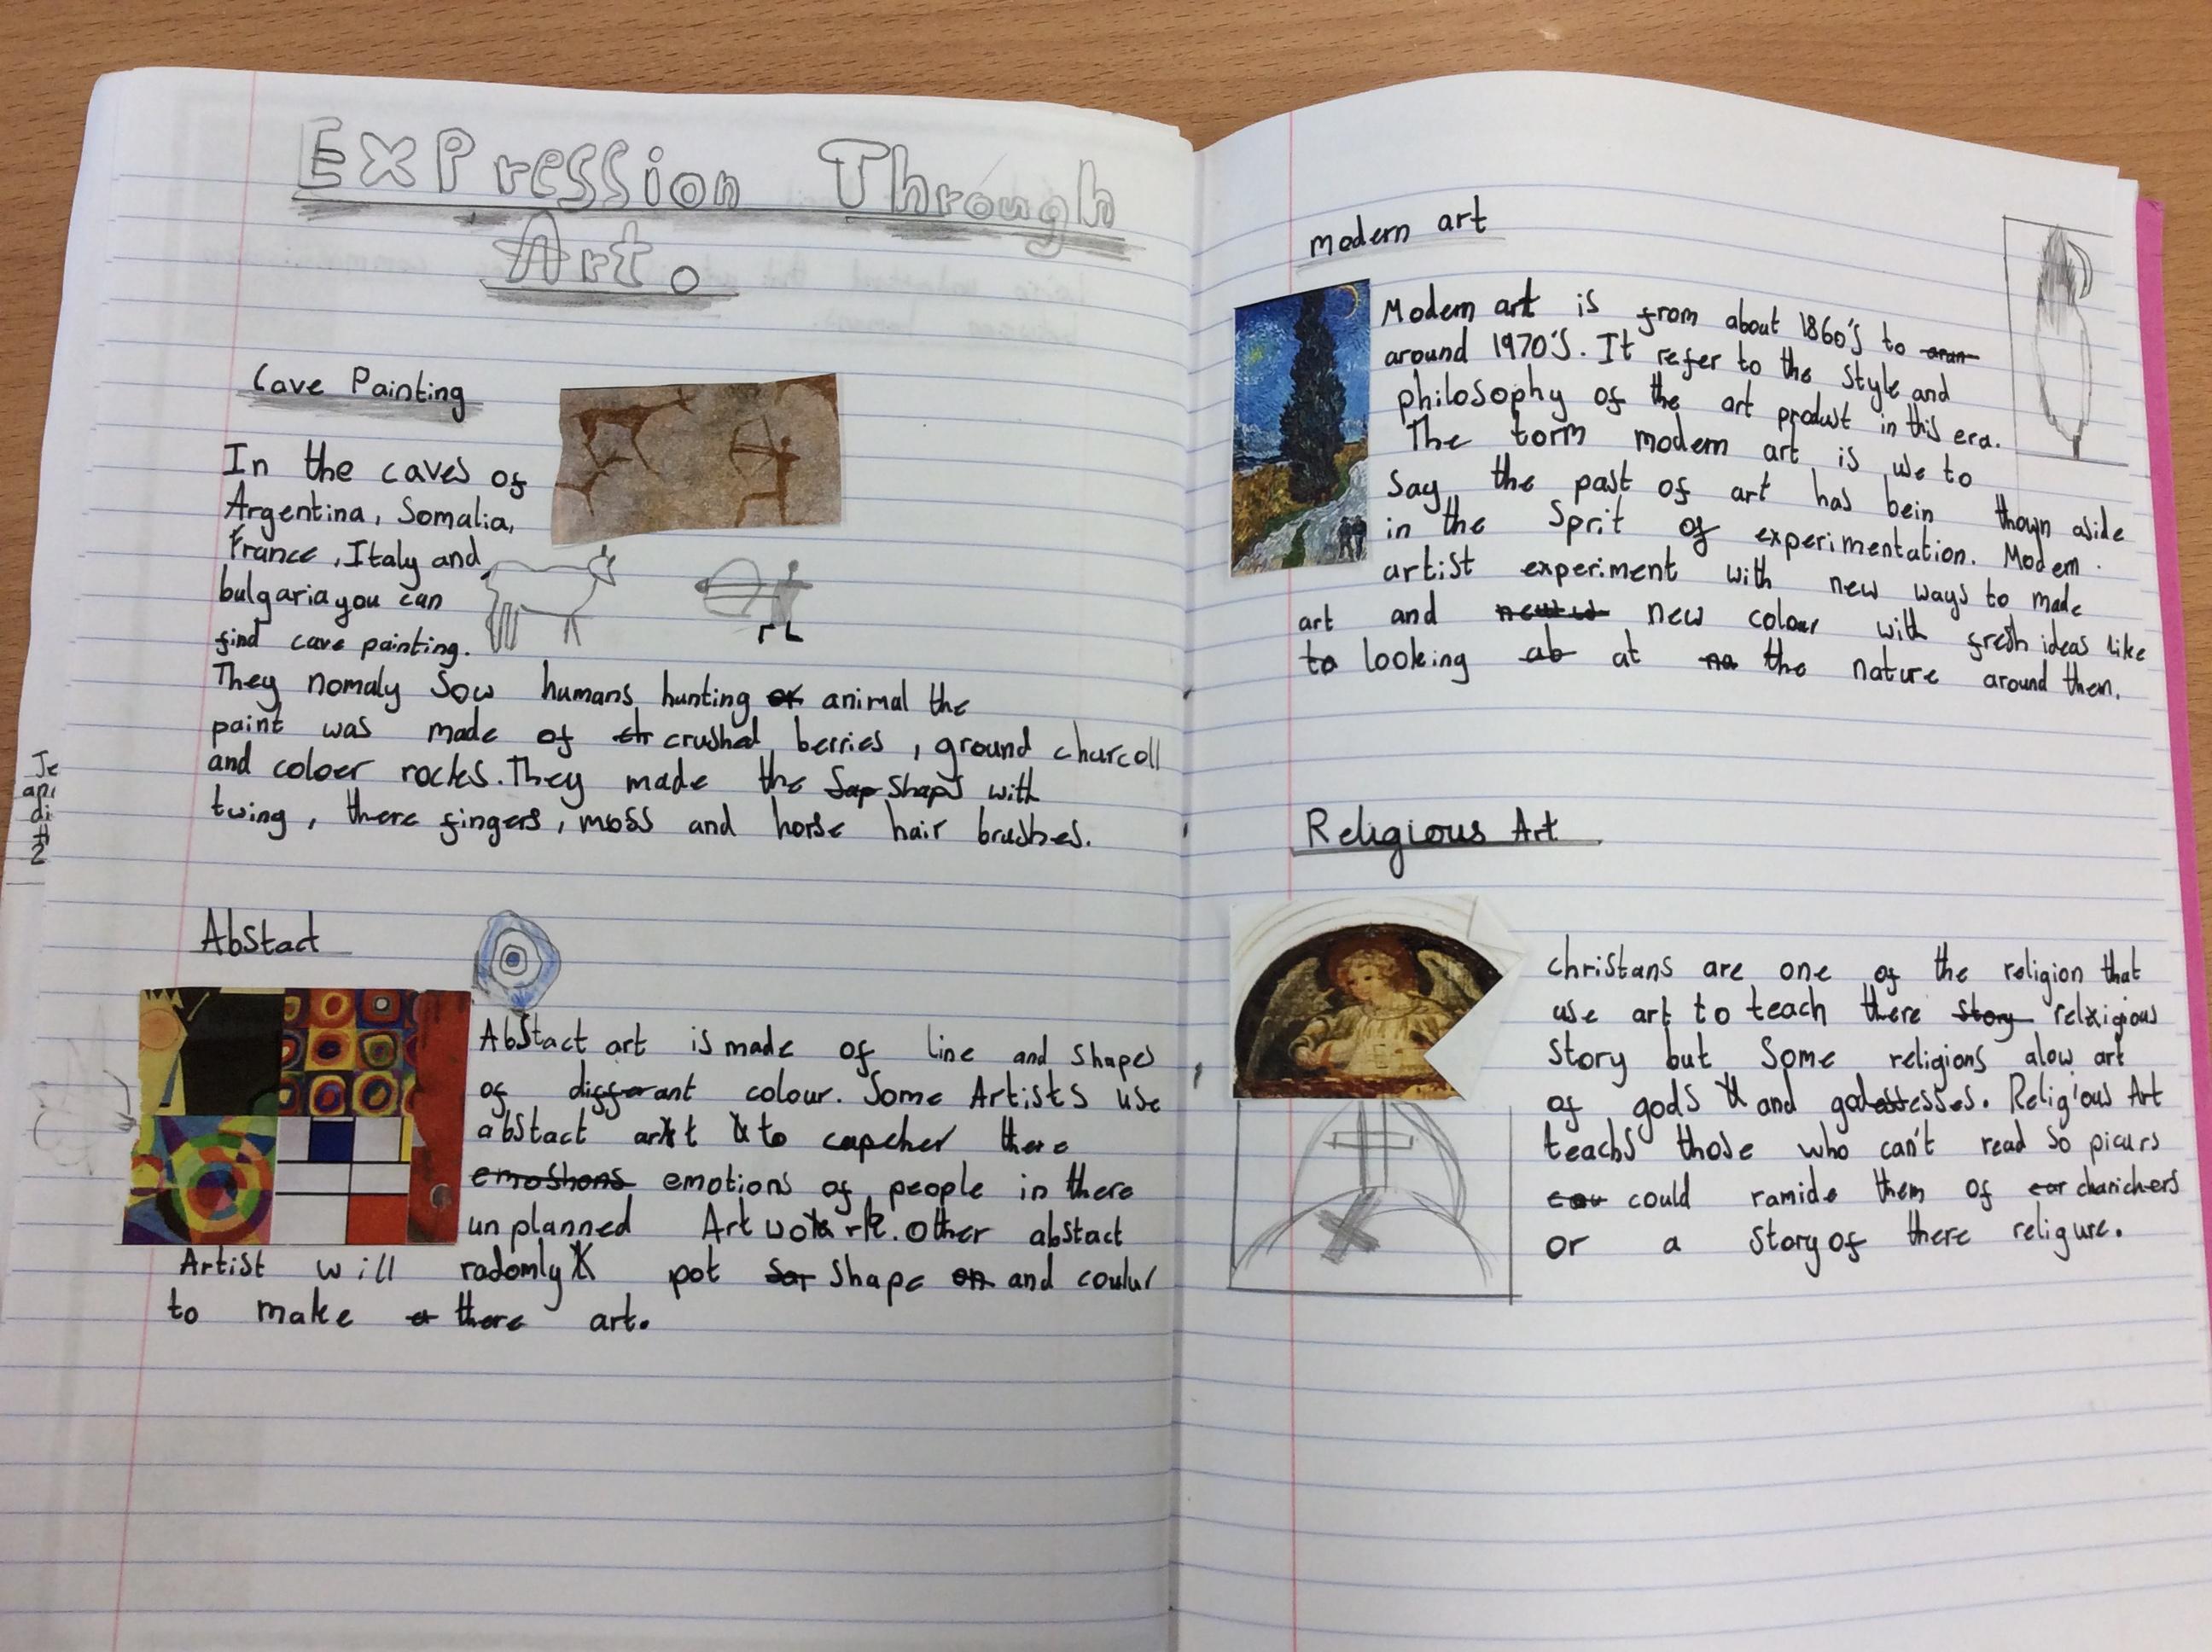 Expression Through
Art.
Cave Painting
In the caves of
Argentina, Somalia,
France, Italy and
bulgaria you can
find cave painting.
They nomaly Sow humans hunting or animal the
paint was made of ch crushed berries, ground charcoll
and coloer rocks. They made the Sap Shaps with
twing, there fingers, moss and horse hair brushes.
Abstact
Abstact art is made of line and shapes
of differant colour. Some Artists use
abstact art to capcher there
emoshons emotions of people in there
unplanned Art work. other abstact
Artist will radomly pot Sar shape on and coulur
to make a there art.
Je
an
di
2
modern art
Modern art is from about 1860's to aran
around 1970's. It refer to the style and
philosophy of the art product in this era.
The torm modern art is use to
Say the past of art has bein thown aside
in the Sprit of experimentation. Modern
artist experiment with new ways to made
art and new colour with fresh ideas like
to looking ab at na the nature around them.
Religious Art
christans are one of the religion that
use art to teach there story religious
story but Some religions alow art
of gods and godesses. Religious Art
teachs those who can't read so picurs
cou could ramide them of car charichers
or a story of there religure.